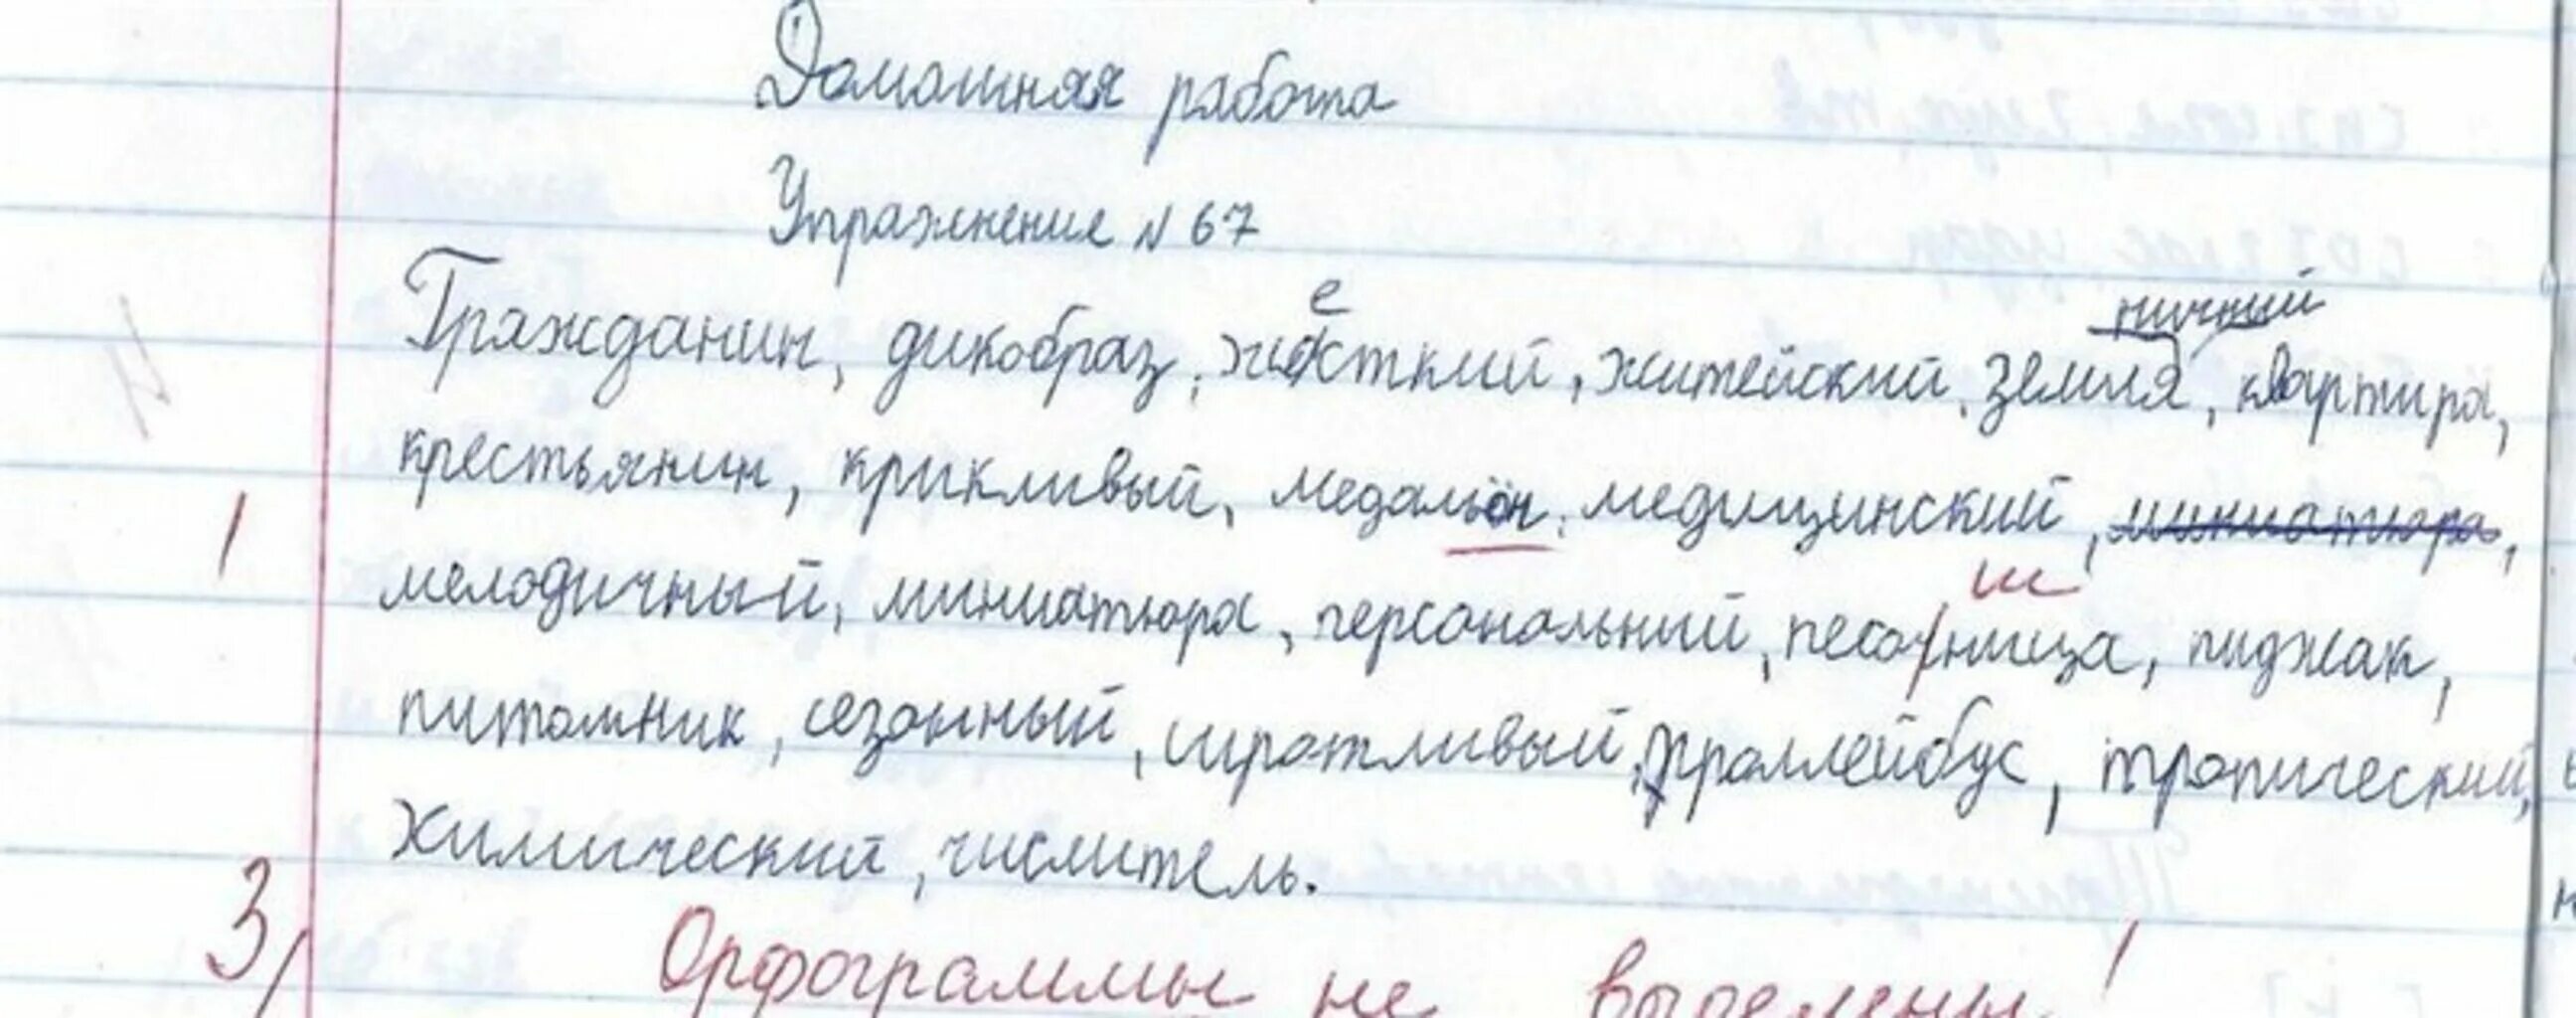 Домашняя работа
Упражнение № 67
Гражданин, дикобраз, жесткий, житейский, земляничный, квартира,
крестьянин, крикливый, медальон, медицинский, миниатюра,
1 мелодичный, миниатюра, персональный, песочница, пиджак,
ш
питомник, сезонный, сиротливый, троллейбус, тропический,
химический, числитель.
3/ Орфограммы не выделены!